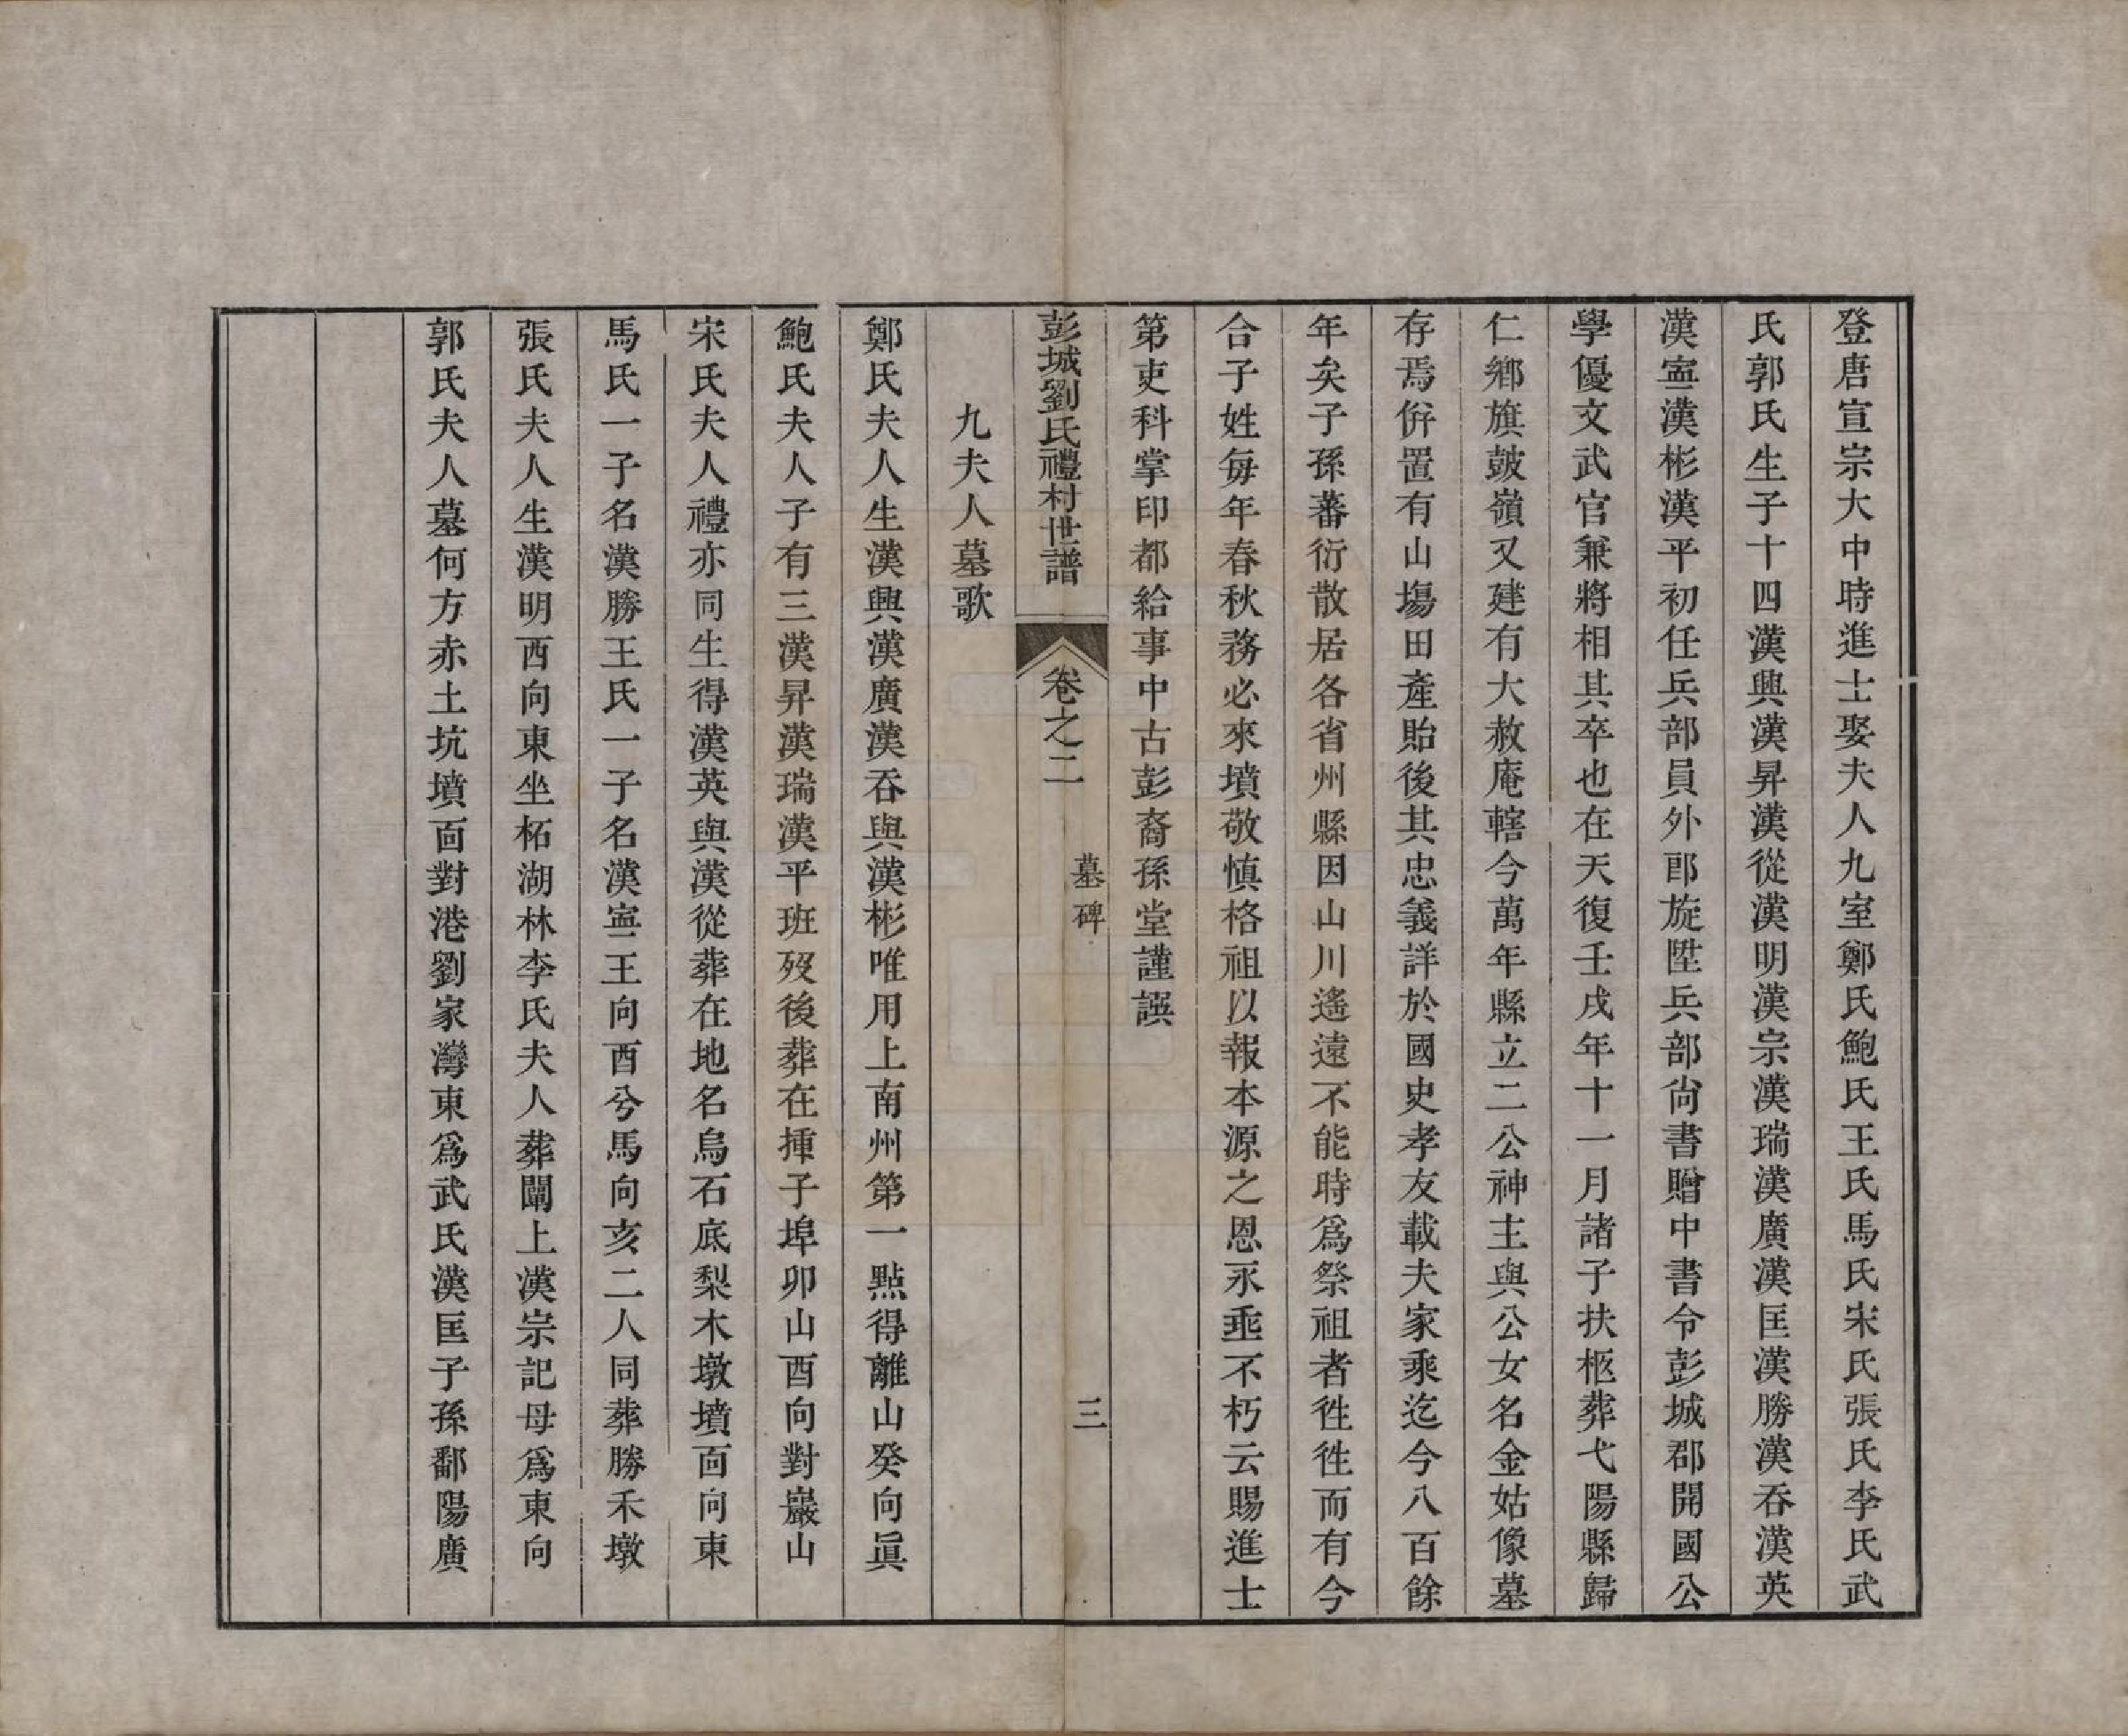 登唐宣宗大中時進士娶夫人九室鄭氏鮑氏王氏馬氏宋氏張氏李氏武
氏郭氏生子十四漢興漢昇漢從漢明漢宗漢瑞漢廣漢匡漢勝漢吞漢英
漢寍漢彬漢平初任兵部員外郎旋陞兵部尙書贈中書令彭城郡開國公
學優文武官兼將相其卒也在天復壬戌年十一月諸子扶柩葬弋陽縣歸
仁鄉旗鼓嶺又建有大赦庵轄今萬年縣立二公神主與公女名金姑像墓
存焉倂置有山塲田產貽後其忠義詳於國史孝友載夫家乘迄今八百餘
年矣子孫蕃衍散居各省州縣因山川遙遠不能時爲祭祖者徃徃而有今
合子姓每年春秋務必來墳敬慎格祖以報本源之恩永垂不朽云賜進士
第吏科掌印都給事中古彭裔孫堂謹譔
彭城劉氏禮村世譜
卷之二
墓碑
三
九夫人墓歌
鄭氏夫人生漢興漢廣漢吞與漢彬唯用上南州第一點得離山癸向眞
鮑氏夫人子有三漢昇漢瑞漢平班歿後葬在揰子埠卯山酉向對巖山
宋氏夫人禮亦同生得漢英與漢從葬在地名烏石底梨木墩墳面向東
馬氏一子名漢勝王氏一子名漢寍王向酉兮馬向亥二人同葬勝禾墩
張氏夫人生漢明西向東坐柘湖林李氏夫人葬闈上漢宗記母爲東向
郭氏夫人墓何方赤土坑墳面對港劉家灣東爲武氏漢匡子孫鄱陽廣